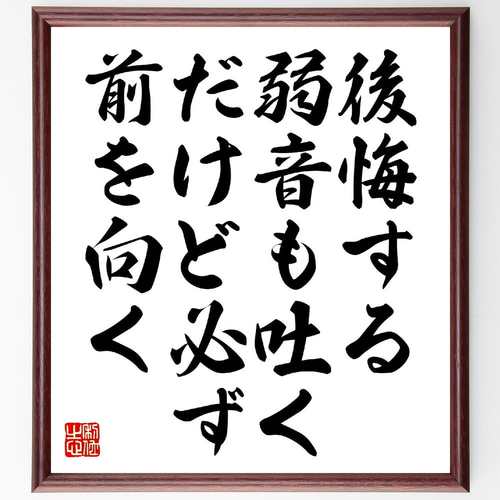 後悔する
弱音も吐く
だけど必ず
前を向く